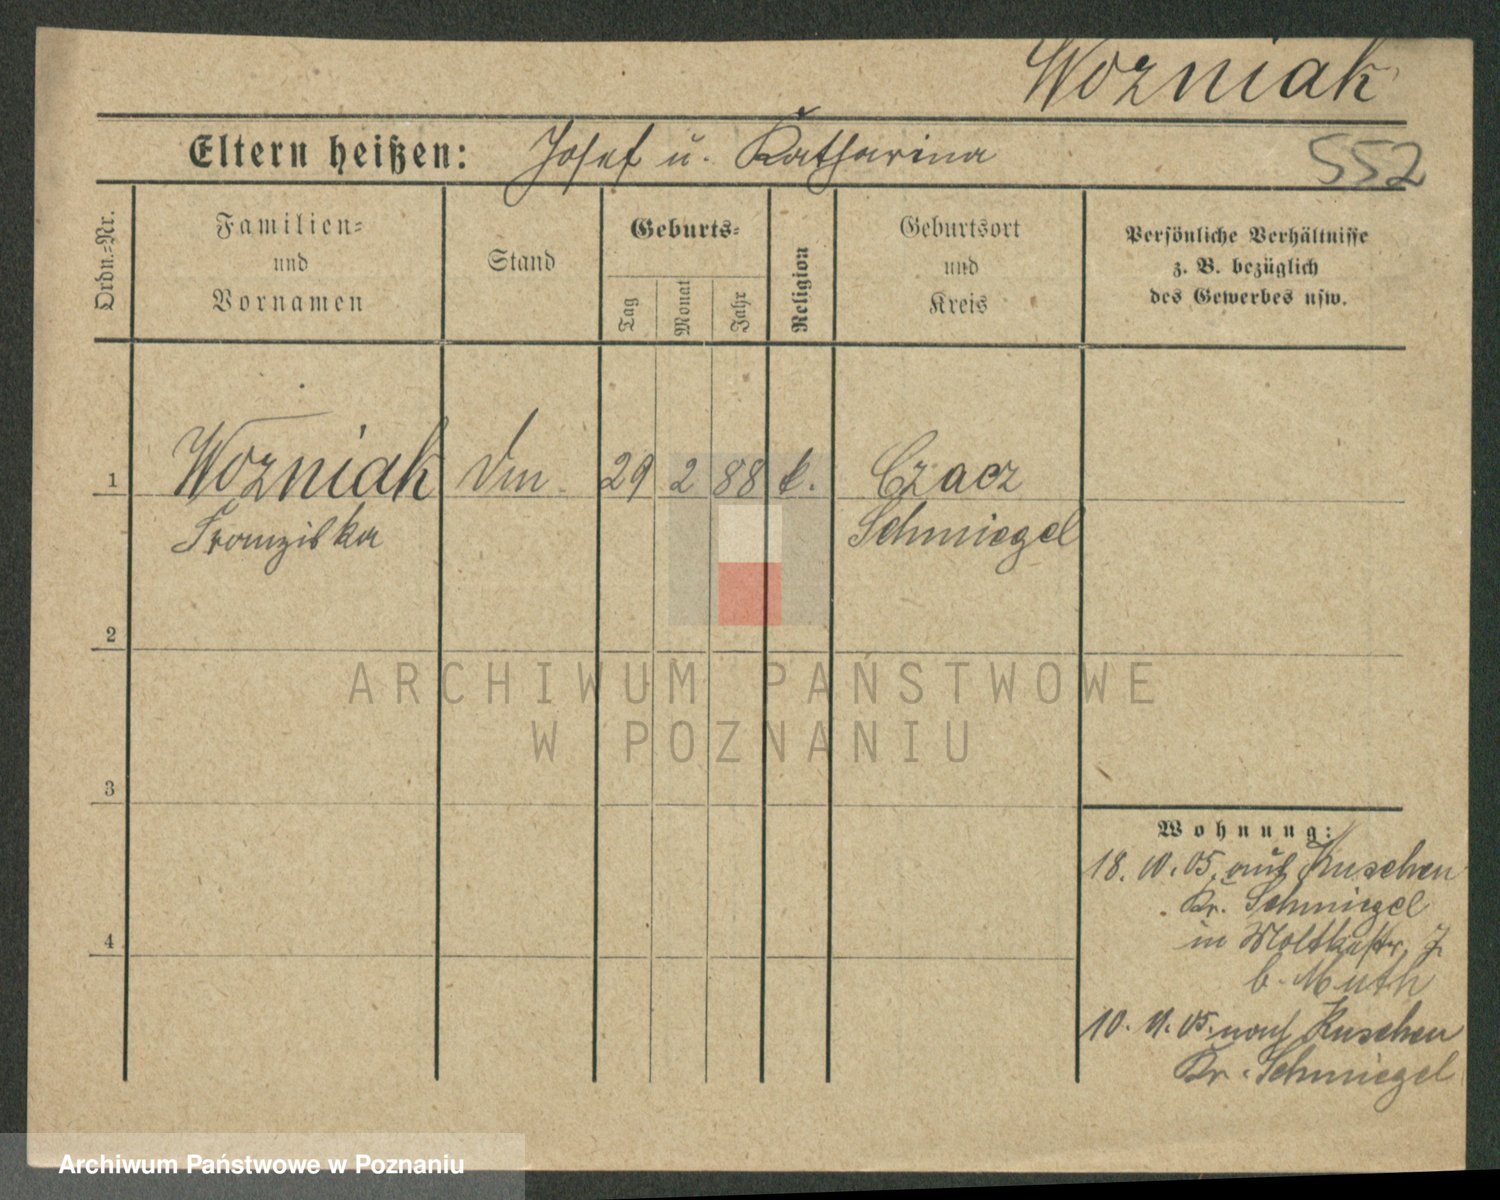 Wozniak
Eltern heißen: Josef u. Katharina
552
Ordn.-Nr.
Familien=
und
Vornamen
Stand
Geburts=
Tag
Monat
Jahr
Religion
Geburtsort
und
Kreis
Persönliche Verhältnisse
z. B. bezüglich
des Gewerbes usw.
1 Wozniak 29 2 88 k. Czacz
Franziska Schmiegel
2
3
4
Wohnung:
18. 10. 05. aus Kuschen
Kr. Schmiegel
in Moltkestr. 7.
b. Muth
10. 11. 05. nach Kuschen
Kr. Schmiegel
ARCHIWUM PAŃSTWOWE
W POZNANIU
Archiwum Państwowe w Poznaniu